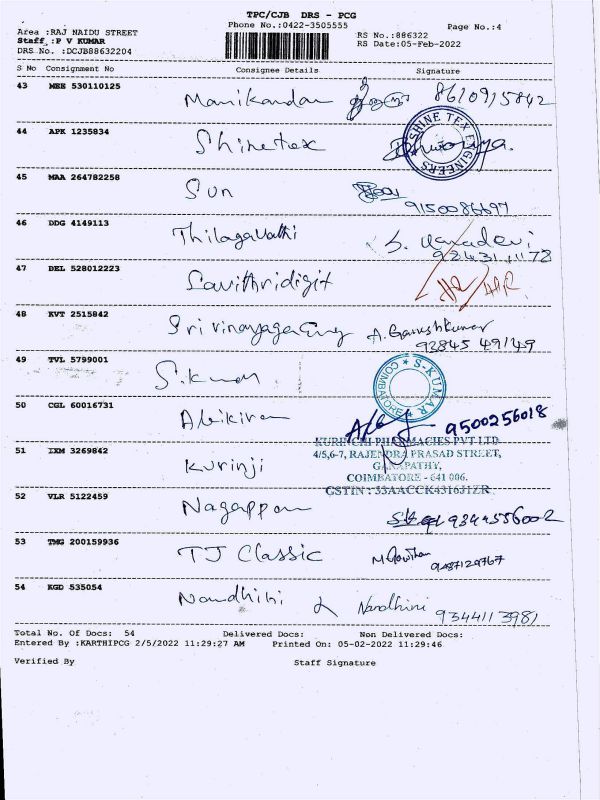 TPC/CJB DRS - PCG
Phone No.:0422-3505555
Page No.:4
Area :RAJ NAIDU STREET
Staff :P V KUMAR
DRS No. :DCJB88632204
RS No.:886322
RS Date:05-Feb-2022
S No Consignment No Consignee Details Signature
43 MEE 530110125 Manikandan 8610915842
44 APK 1235834 Shinetex
SHINE TEX ENGINEERS
45 MAA 264782258 Sun
9150086697
46 DDG 4149113 Thilagavathi
47 DEL 528012223 Savithridigit
48 KVT 2515842 Srivinayaga Eng A. Ganeshkumar
93845 49149
49 TVL 5799001 S.kumar
S-KUMAR COIMBATORE
50 CGL 60016731 Abikiran 9500256018
KURINCHI PHARMACIES PVT LTD
51 IXM 3269842 Kurinji
4/5,6-7, RAJENDRA PRASAD STREET,
GANAPATHY,
COIMBATORE - 641 006.
GSTIN : 33AACCK4316J1ZR
52 VLR 5122459 Nagappan 9344556002
53 TMG 200159936 TJ Classic
54 KGD 535054 Nandhini Nandhini
9344113981
Total No. Of Docs: 54 Delivered Docs: Non Delivered Docs:
Entered By :KARTHIPCG 2/5/2022 11:29:27 AM Printed On: 05-02-2022 11:29:46
Verified By Staff Signature